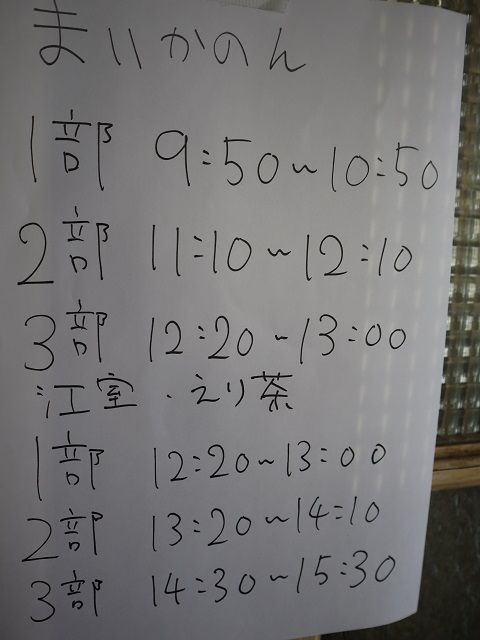 まいかのん
1部 9:50~10:50
2部 11:10~12:10
3部 12:20~13:00
江室・えり茶
1部 12:20~13:00
2部 13:20~14:10
3部 14:30~15:30